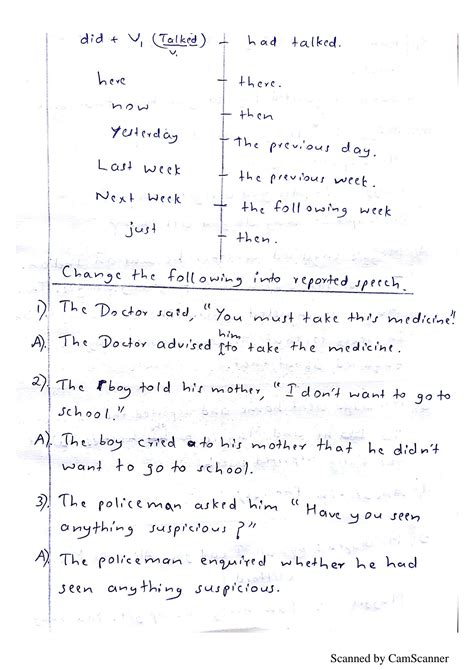 did + V1 (Talked) - had talked.
V1
here - there.
now - then
Yesterday - The previous day.
Last week - the previous week.
Next week - the following week
just - then.
Change the following into reported speech.
1) The Doctor said, "You must take this medicine."
A). The Doctor advised him to take the medicine.
2). The boy told his mother, "I don't want to go to
school."
A). The boy cried to his mother that he didn't
want to go to school.
3). The policeman asked him "Have you seen
anything suspicious?"
A). The policeman enquired whether he had
seen anything suspicious.
Scanned by CamScanner